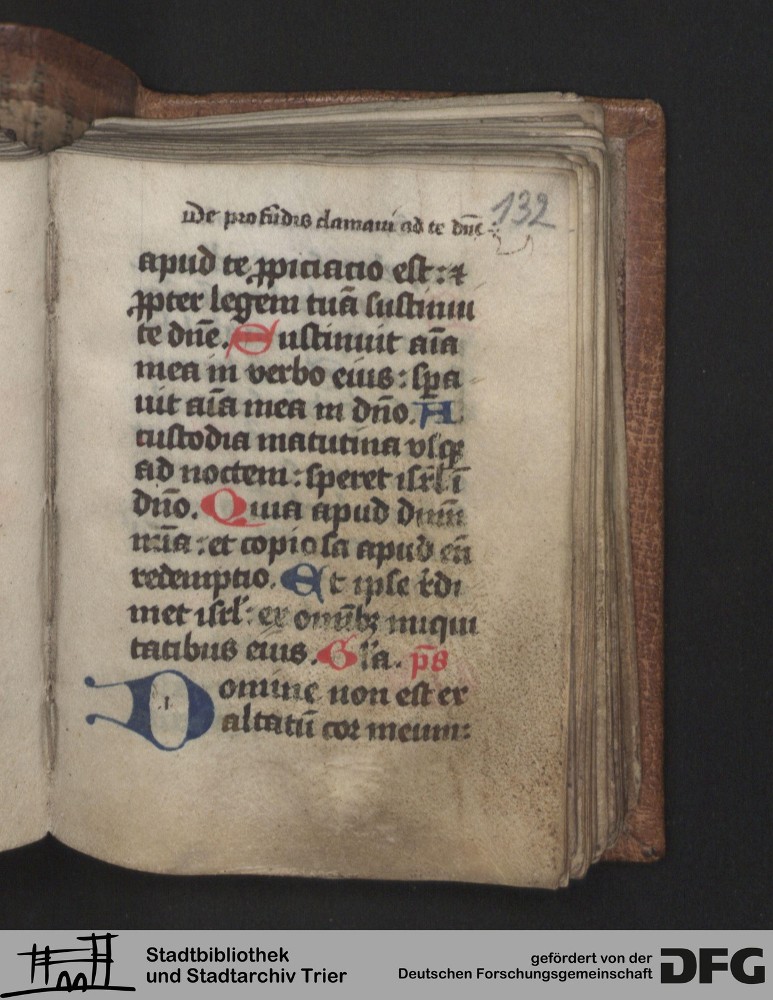 De profūdis clamaui ad te dn̄e
132
apud te ꝓpiciacio est : ⁊
ꝓpter legem tuā sustinui
te dn̄e. Sustinuit aīa
mea in verbo eius : spa
uit aīa mea in dn̄o. A
custodia matutina vsqꝫ
ad noctem : speret isrl̄ ī
dn̄o. Quia apud dnm̄
mīa : et copiosa apud eū
redemptio. Et ipse rēdi
met isrl̄ : ex omībꝫ iniqui
tatibus eius. Gl̄a. p̄s
Domine non est ex
altatū cor meum :
Stadtbibliothek
und Stadtarchiv Trier
gefördert von der
Deutschen Forschungsgemeinschaft
DFG